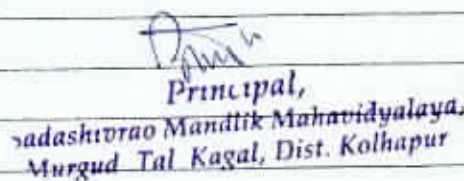 Principal,
Sadashivrao Mandlik Mahavidyalaya,
Murgud Tal Kagal, Dist. Kolhapur